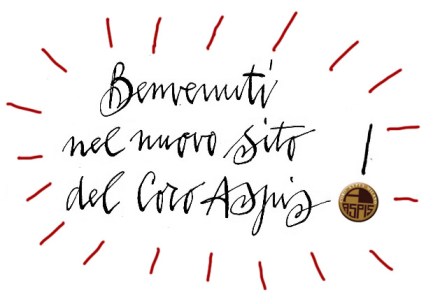 Benvenuti
nel nuovo sito
del Coro Aspis !
ASPIS